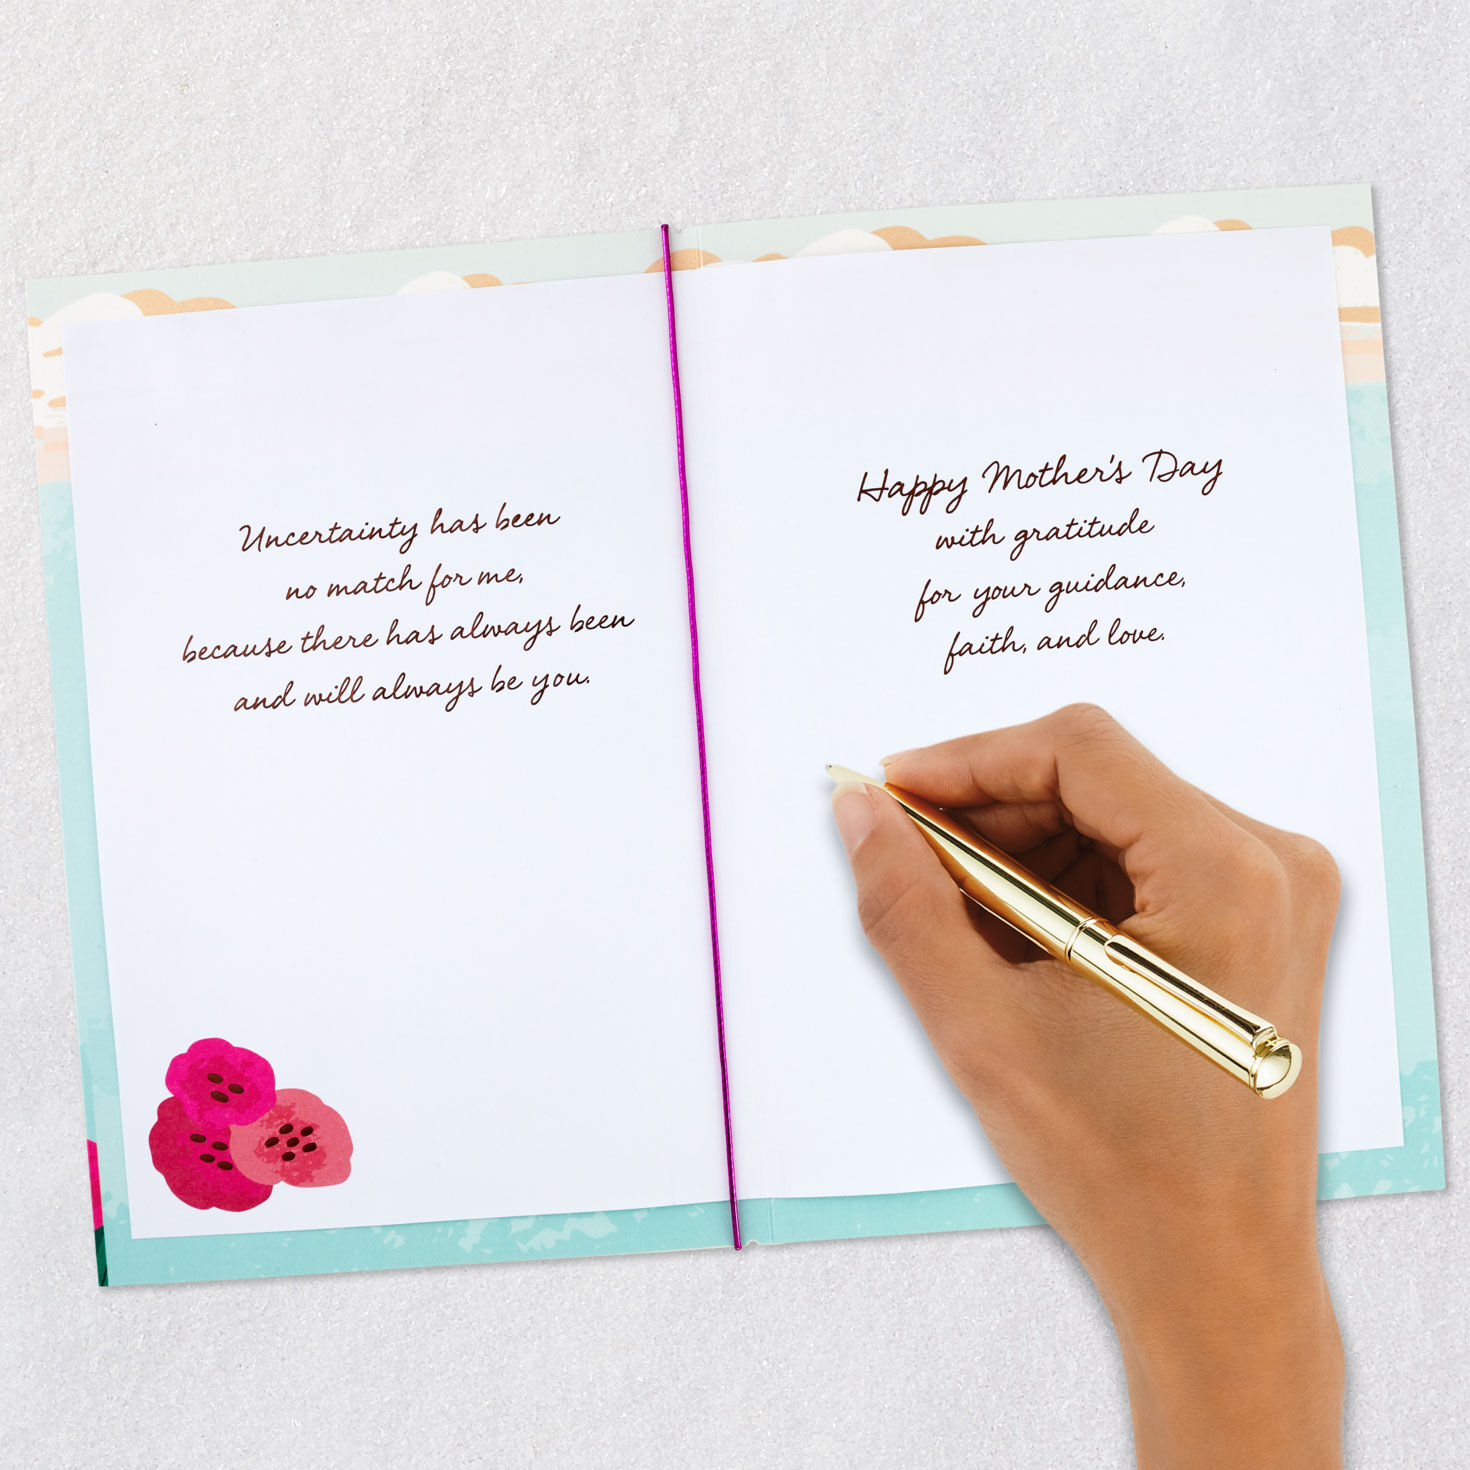 Uncertainty has been
no match for me,
because there has always been
and will always be you.
Happy Mother's Day
with gratitude
for your guidance,
faith, and love.